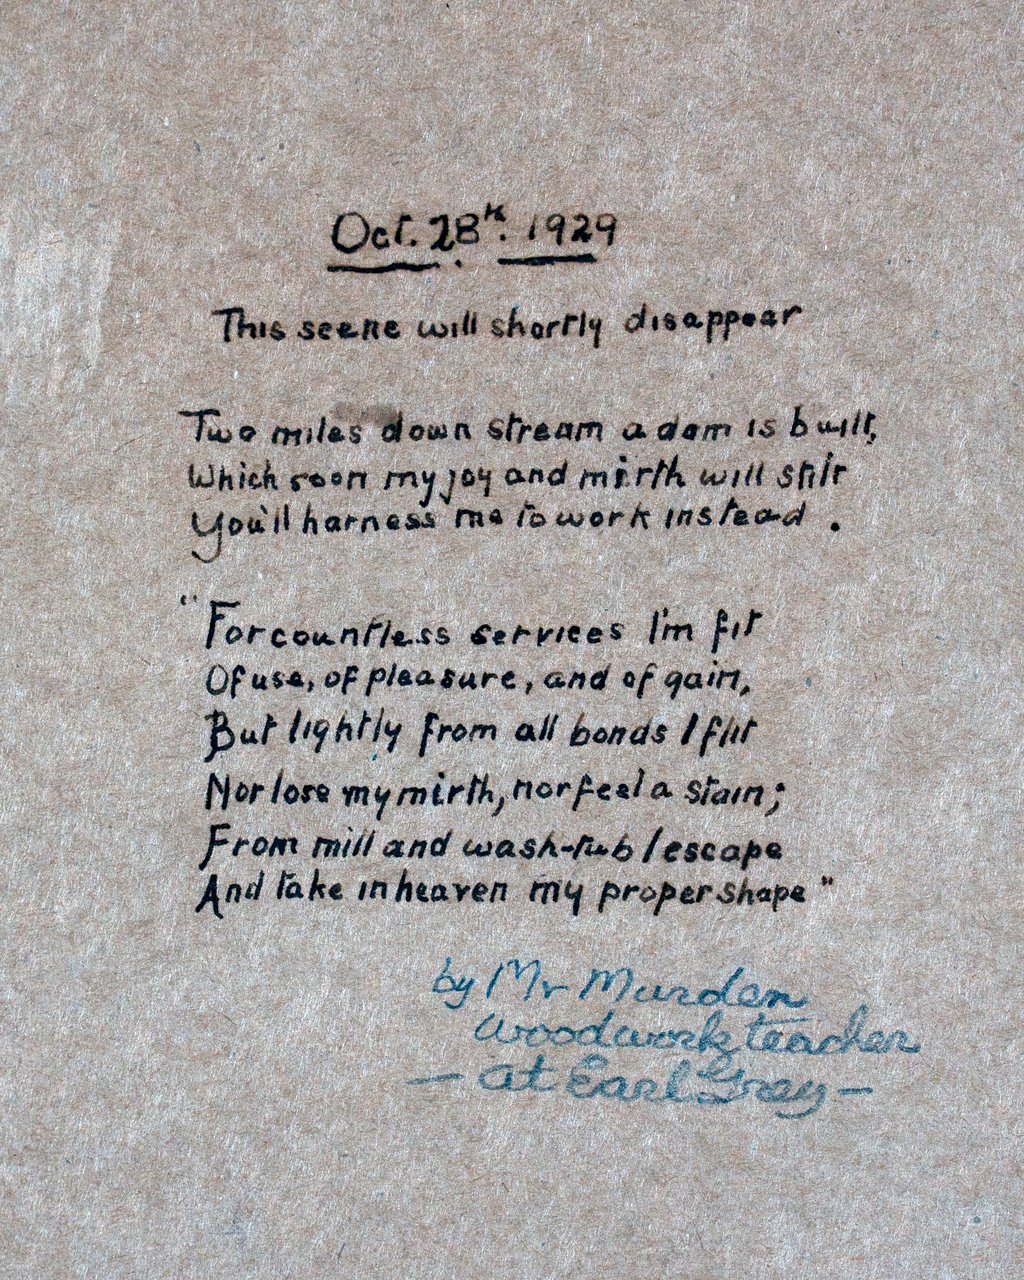 Oct. 28th. 1929
This scene will shortly disappear
Two miles down stream a dam is built,
Which soon my joy and mirth will still
You'll harness me to work instead.
"For countless services I'm fit
Of use, of pleasure, and of gain,
But lightly from all bonds I flit
Nor lose my mirth, nor feel a stain;
From mill and wash-tub I escape
And take in heaven my proper shape"
by Mr Murden
woodwork teacher
- at Earl Grey -